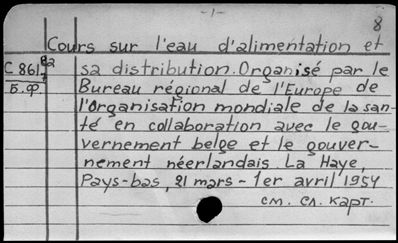 -1-
8
Cours sur l'eau d'alimentation et
C 861 sa distribution. Organisé par le
Б.Ф Bureau régional de l'Europe de
l'Organisation mondiale de la san-
té en collaboration avec le gou-
vernement belge et le gouver-
nement néerlandais La Haye,
Pays-bas, 21 mars - 1er avril 1954
см. сл. карт.